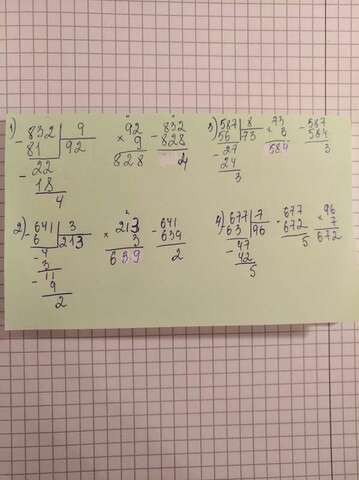 1) - 832 | 9
81 | 92
- 22
18
4
× 92
9
828
- 832
828
4
2) - 641 | 3
6 | 213
- 4
3
- 11
9
2
× 213
3
639
- 641
639
2
3) 587 | 8
56 | 73
- 27
24
3
× 73
8
584
- 587
584
3
4) 677 | 7
- 63 | 96
- 47
42
5
- 677
672
5
× 96
7
672